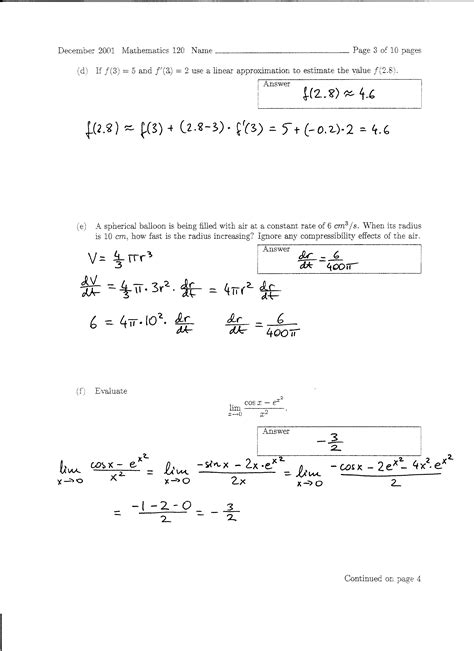 December 2001 Mathematics 120 Name ____________ Page 3 of 10 pages
(d) If f(3) = 5 and f'(3) = 2 use a linear approximation to estimate the value f(2.8).
Answer
f(2.8) ≈ 4.6
f(2.8) ≈ f(3) + (2.8-3)· f'(3) = 5 + (-0.2)·2 = 4.6
(e) A spherical balloon is being filled with air at a constant rate of 6 cm³/s. When its radius
is 10 cm, how fast is the radius increasing? Ignore any compressibility effects of the air.
Answer
dr/dt = 6/400π
V = 4/3 πr³
dV/dt = 4/3 π· 3r² · dr/dt = 4πr² dr/dt
6 = 4π·10² · dr/dt dr/dt = 6/400π
(f) Evaluate
lim x→0 (cos x − e^x²)/x² .
Answer
-3/2
lim x→0 (cosx − e^x²)/x² = lim x→0 (-sinx − 2x·e^x²)/2x = lim x→0 (-cosx − 2e^x² − 4x²·e^x²)/2
= (-1-2-0)/2 = -3/2
Continued on page 4